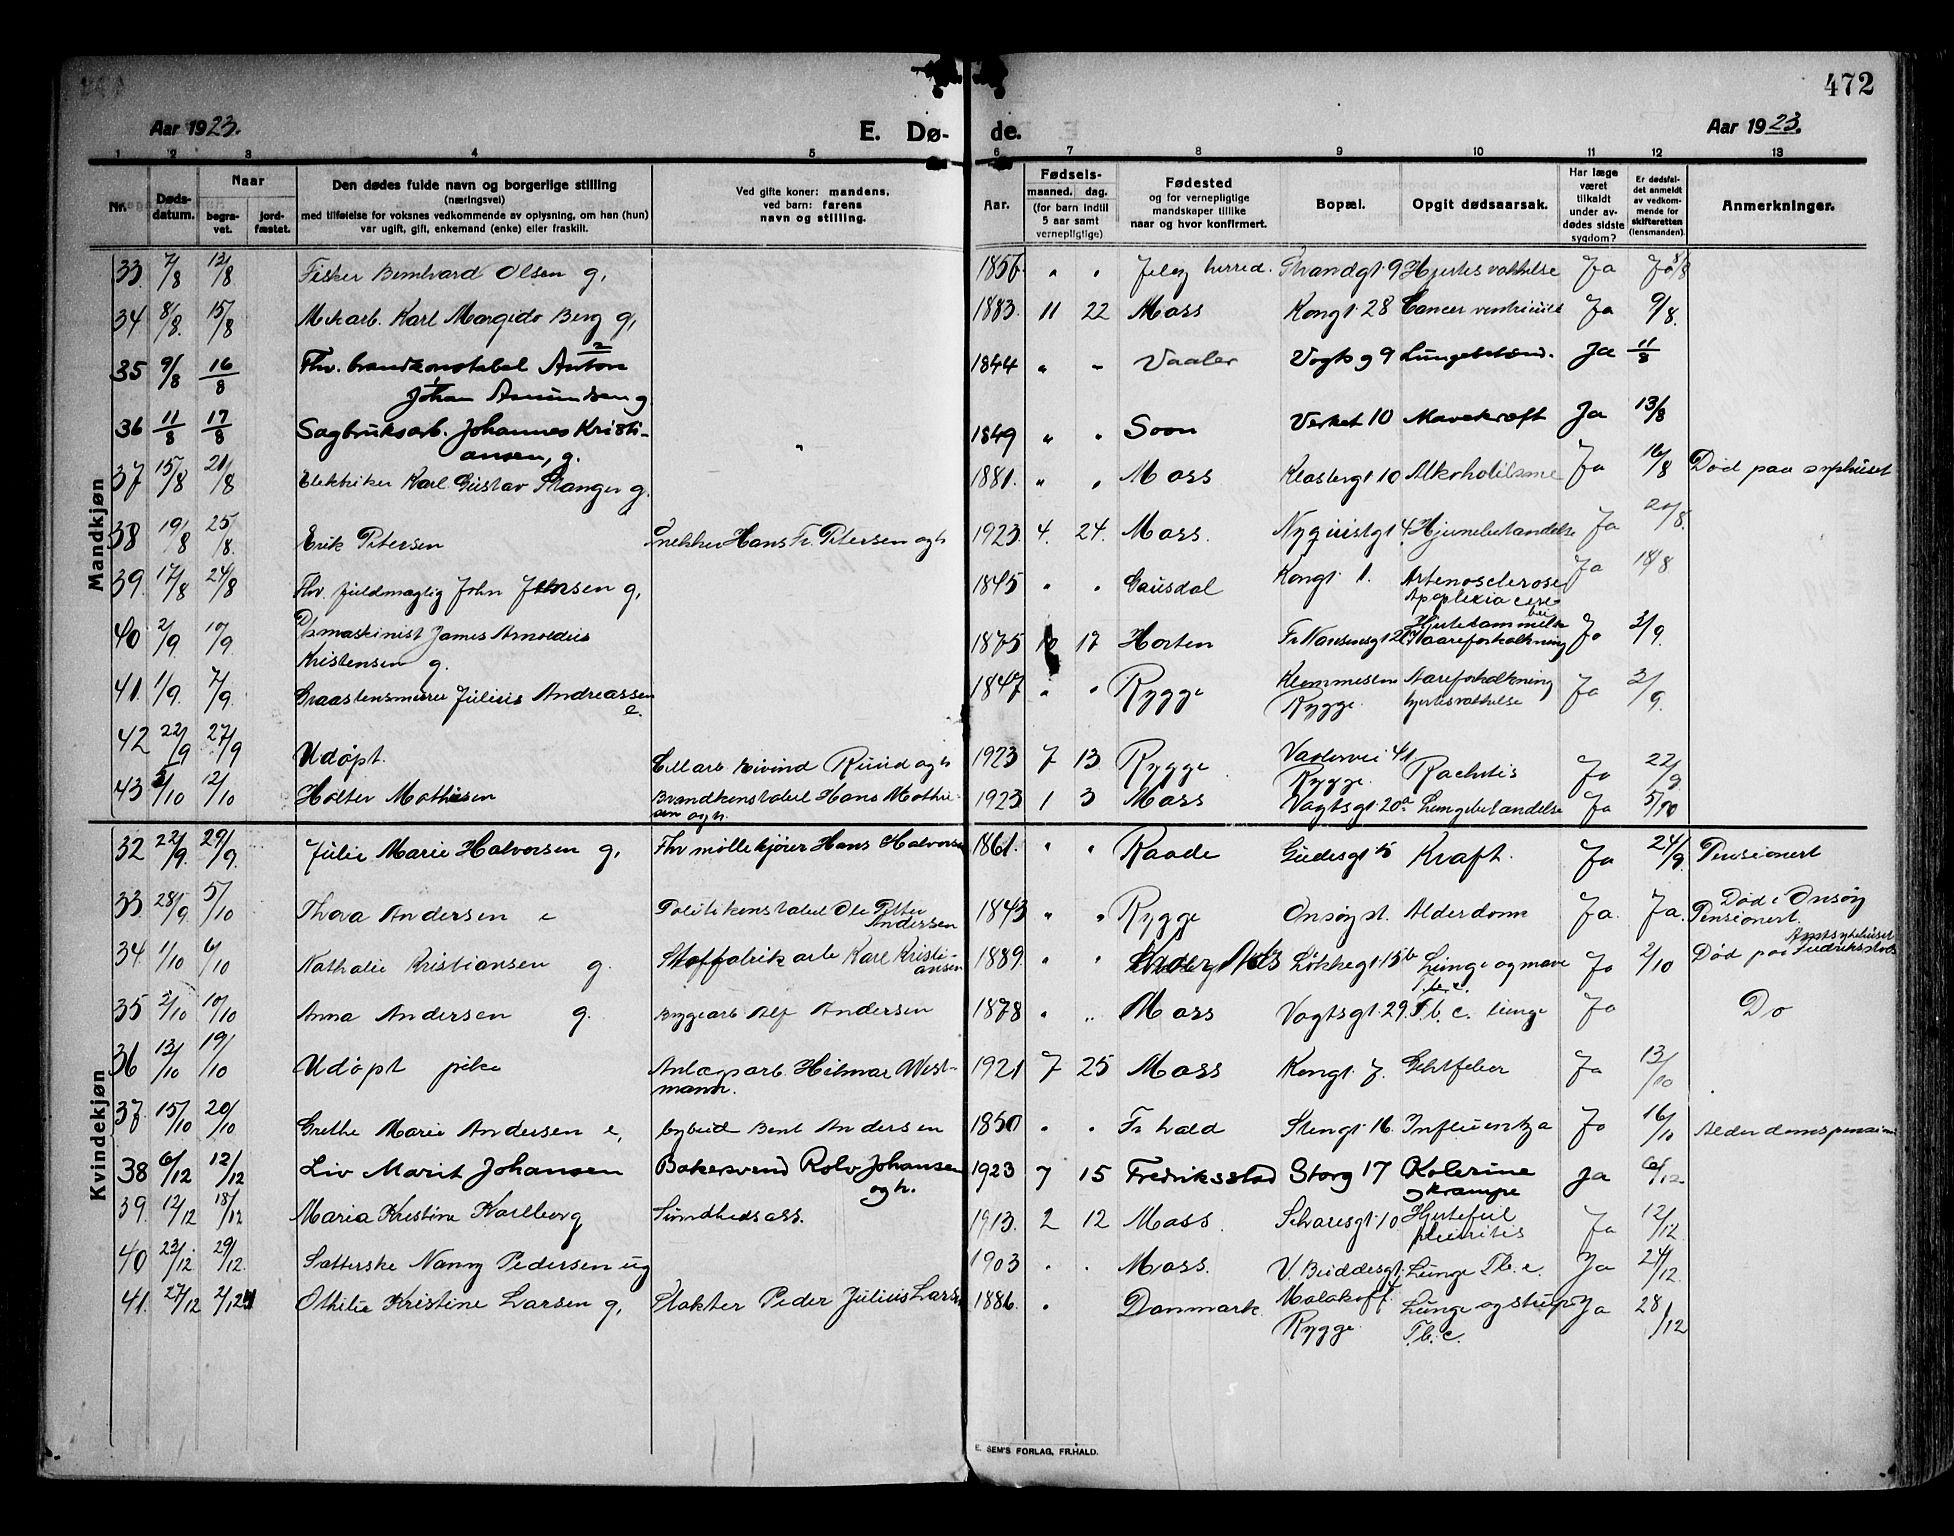 472
Aar 1923.
E. Dø-
de.
Aar 1923.
1 2 3 4 5 6 7 8 9 10 11 12 13
Nr.
Døds-
datum.
Naar
begra-
vet.
jord-
fæstet.
Den dødes fulde navn og borgerlige stilling
(næringsvei)
med tilføielse for voksnes vedkommende av oplysning, om han (hun)
var ugift, gift, enkemand (enke) eller fraskilt.
Ved gifte koner: mandens,
ved barn: farens
navn og stilling.
Aar.
Fødsels-
maaned. dag.
(for barn indtil
5 aar samt
vernepligtige)
Fødested
og for vernepligtige
mandskaper tillike
naar og hvor konfirmert.
Bopæl.
Opgit dødsaarsak.
Har læge
været
tilkaldt
under av-
dødes sidste
sygdom?
Er dødsfal-
det anmeldt
av vedkom-
mende for
skifteretten
(lensmanden).
Anmerkninger.
Mandkjøn
33. 7/8 13/8 Fisker Berntvard Olsen g, 1856 " " Jeløy herred. Strandgt. 9 Hjertesvækkelse Ja Ja 8/8
34 8/8. 15/8 Mek.arb. Karl Margido Berg g, 1883. 11 22 Moss Kongt. 28 Cancer ventriculi Ja 9/8.
35 9/8 16/8 Fhv. brandkonstabel Anton 2
1 Johan Amundsen g. 1844 " " Vaaler Vogts g 9 Lungebetænd. Ja 11/8
36 11/8 17/8 Sagbruksarb. Johannes Kristi-
ansen, g. 1849 " " Soon Verket 10 Mavekræft Ja 13/8
37 15/8 21/8 Elektriker Karl Gustav Stanger g. 1881. " " Moss Klostergt 10 Alkoholisme Ja 16/8 Død paa sykhuset
38 19/8 25/8. Erik Petersen Snekker Hans Fr. Petersen og h 1923. 4. 24. Moss. Nyquistgt 4. Hjernebetændelse Ja 20/8.
39. 17/8 24/8 Fhv. fuldmægtig John Jensen g, 1845 " " Gausdal Kongt. 1. Arteriosclerose
Apoplexia cere-
bri Ja 18/8
40 2/9. 10/9 Dsmaskinist James Arnoldus
Kristensen g. 1875 17 Horten Fr. Nansensgt Hjertelammelse
Aareforkalkning Ja 3/9.
41 1/9. 7/9. Graastensmurer Julius Andreassen
e. 1847 " " Rygge Klommesten
Rygge. Aareforkalkning
hjertesvækkelse Ja 3/9.
42 22/9 27/9 Udøpt. Cell.arb Eivind Ruud og h 1923 7 13 Rygge Vaalervei 41
Rygge. Rachitis Ja 22/9
43 3/10 12/10 Holter Mathisen Brandkonstabel Hans Mathi-
sen og h. 1923 1 3 Moss Vogtsgt. 20a Lungebetændelse Ja 5/10
Kvindekjøn
32 22/9. 29/9. Julie Marie Halvorsen g, Fhv møllekjører Hans Halvorsen 1861. " " Raade Gudesgt. 5 Kræft. Ja 24/9. Pensionert
33 28/9 5/10 Thora Andersen e Politikonstabel Ole Petter
Andersen 1843 " " Rygge Onsøy st. Alderdom Ja. Ja. Død i Onsøy
Pensionert.
34 1/10 6/10 Nathalie Kristiansen g. Stoffabrik arb Karl Kristi-
ansen 1889. " " Løkkegt. 15b Lunge og mave
T.b.c. Ja 2/10 Død paa Amtsykehuset
Fredriksstad
35 2/10 10/10 Anna Andersen g. Byggearb Alf Andersen 1878 " " Moss Vogtsgt. 29. Tb. c. lunge Ja Do
36 13/10 19/10 Udøpt pike Anlægsarb. Hilmar West-
mann. 1921 7 25 Moss Kongt. 7. Ja 13/10
37 15/10 20/10 Grethe Marie Andersen e, Bernt Andersen 1850 " " Fr.hald Stengt. 16. Influentza Ja 16/10 Alderdomspension
38 6/12 12/12 Liv Marit Johansen Bakersvend Rolv Johansen
og h. 1923 7 15 Fredriksstad Storg 17 Kolerine
og krampe Ja 6/12
39. 12/12 18/12 Maria Kristine Karlborg Sundhedsass. 1913. 2 12 Moss. Hjertefeil
pleuritis Ja 12/12.
40 23/12. 29/12. Sætterske Nanny Pedersen ug 1903 " " Moss. V. Buddesgt. Lunge Tb. c. Ja 24/12.
41. 27/12 2/1 24 Othilie Kristine Larsen g, Slakter Peder Julius Larsen 1886. " Danmark. Malakoff
Rygge. Lunge og strupe
T.b.c. Ja 28/12
E. SEM'S FORLAG, FR.HALD.